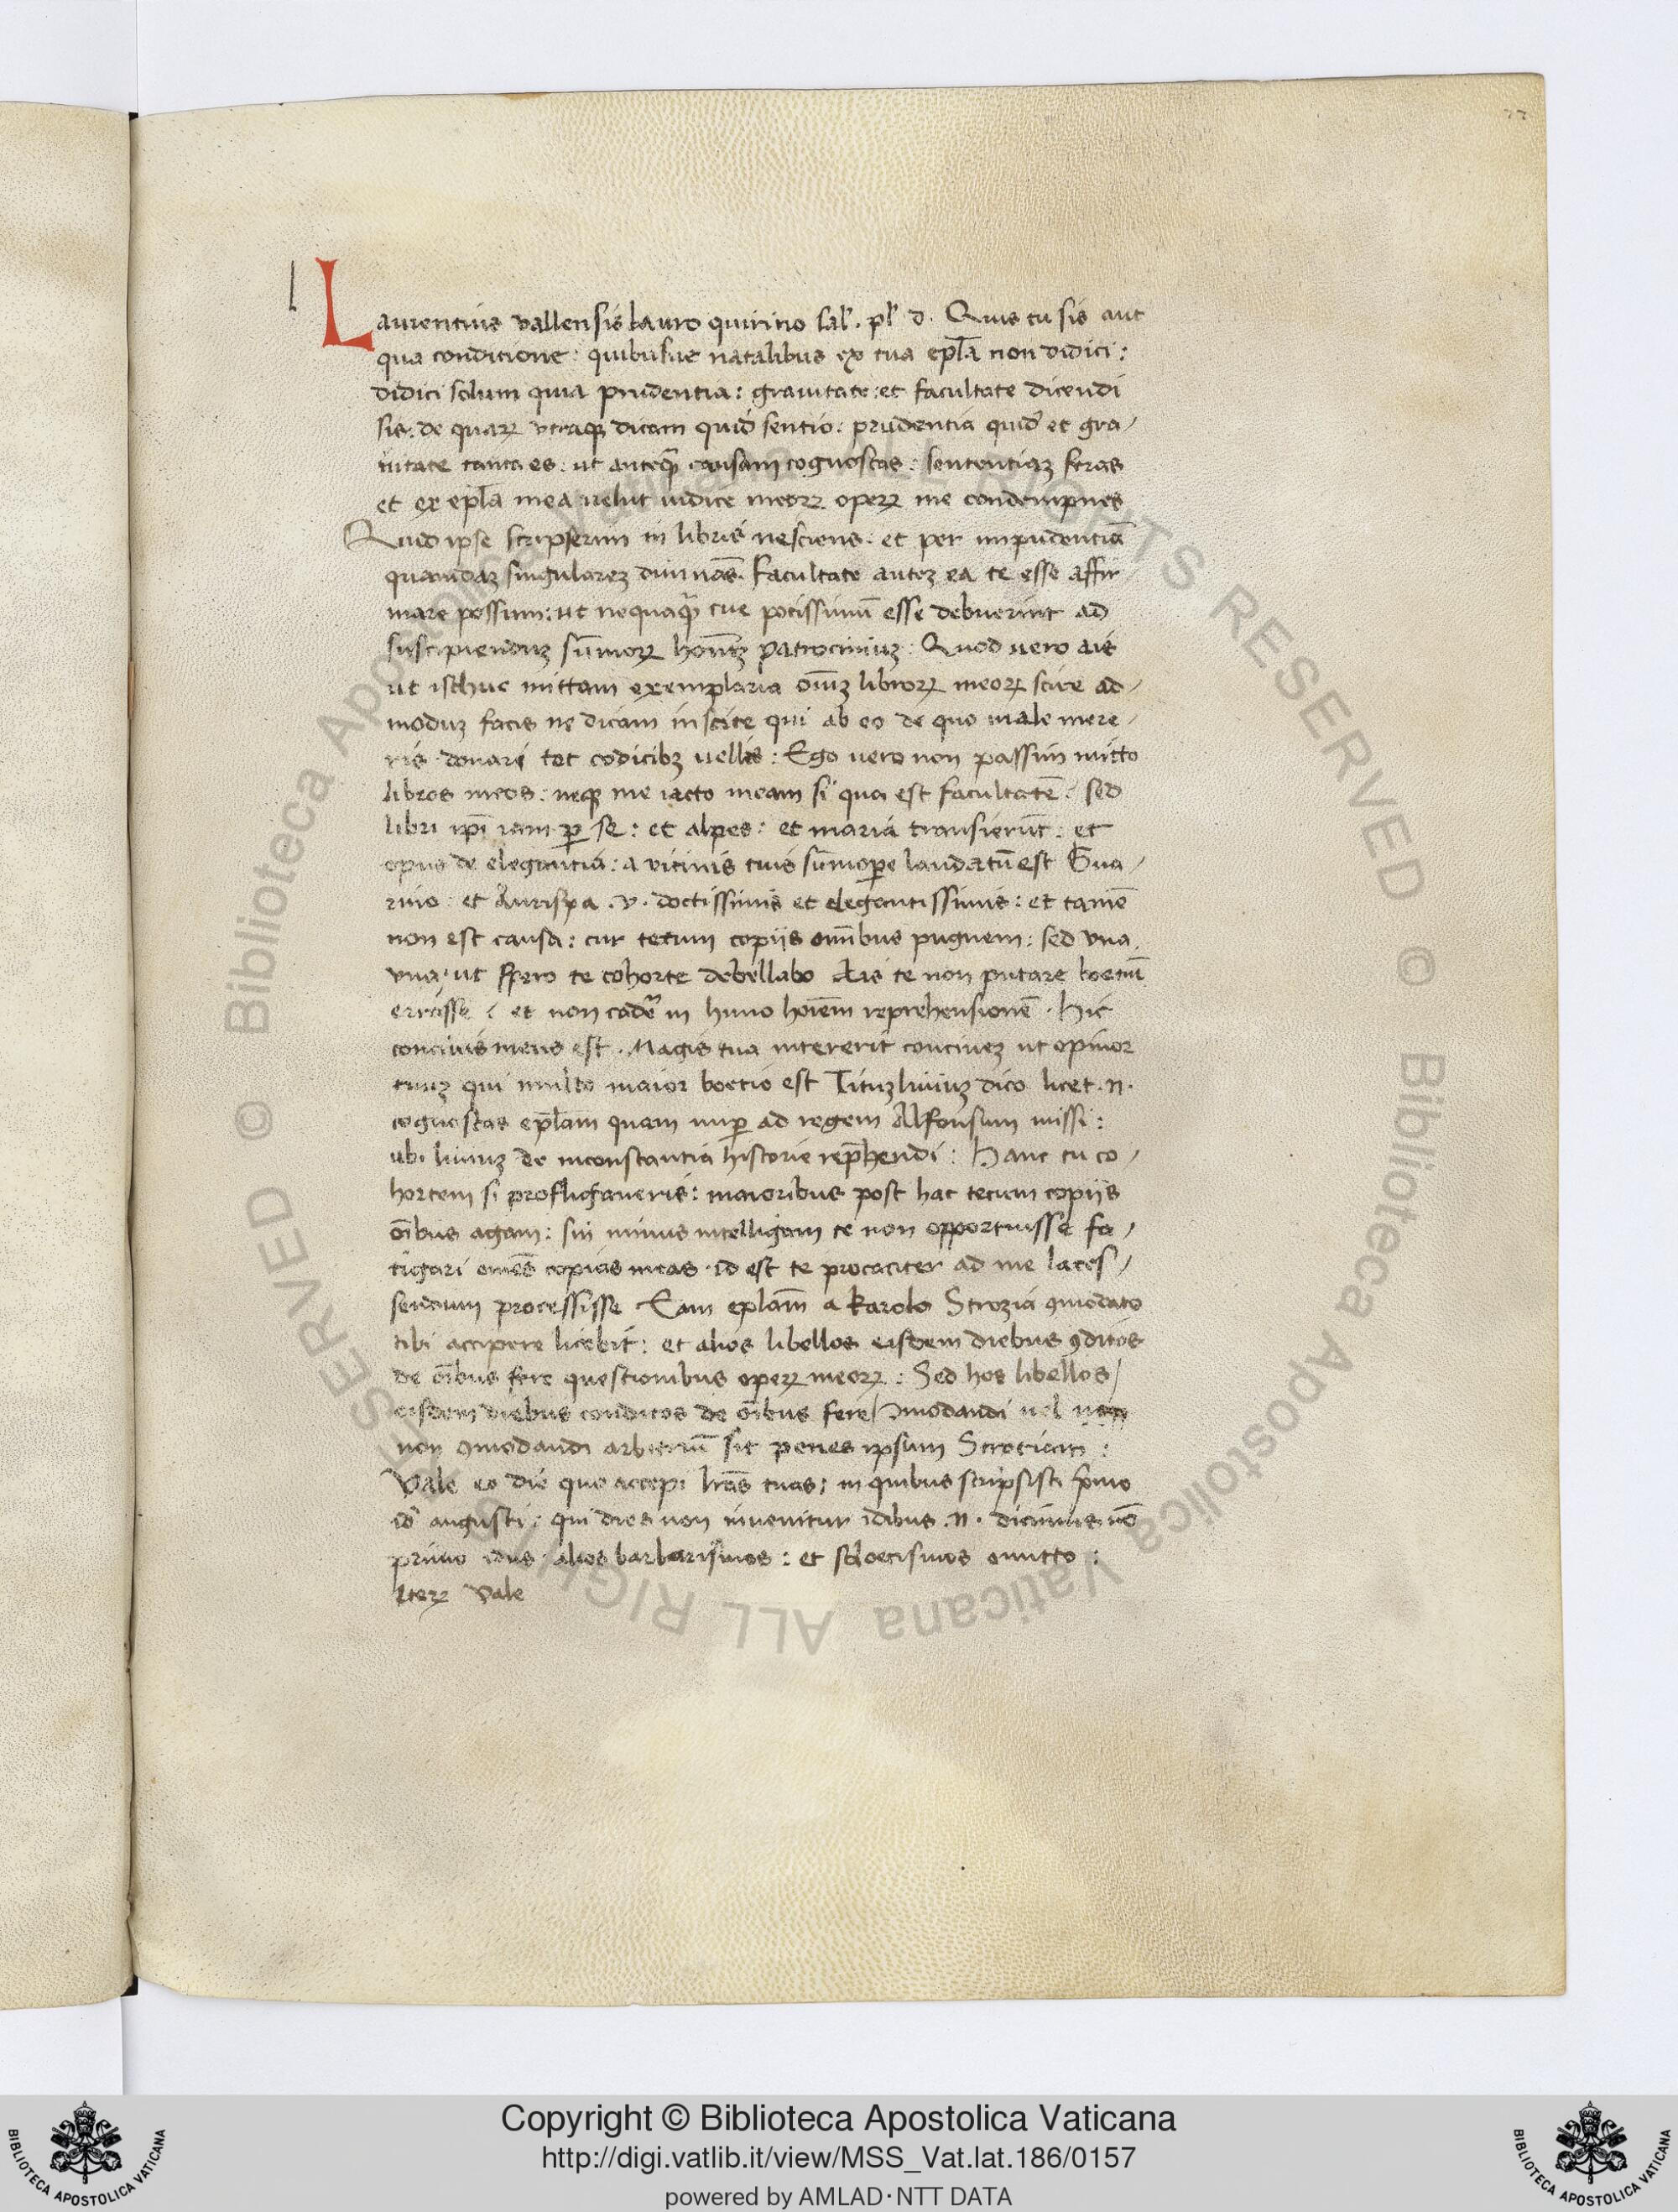 Laurentius vallensis lauro quirino salꝰ. plꝰ d. Quis tu sis aut
qua conditione: quibusue natalibus ex tua epl̄a non didici:
didici solum qua prudentia: grauitate: et facultate dicendi
sis. de quaꝝ utraqꝫ dicam quid sentio: prudentia quidē et gra-
uitate tanta es: ut anteqꝫ causam cognoscas: sententiaꝫ feras
et ex epl̄a mea uelut iudice meoꝝ opeꝝ me condempnes
Quid ipse scripserim in libris nesciens. et per inpudentiā
quandaꝫ singulareꝫ diuinās. Facultate auteꝫ ea te esse affir
mare possum: ut nequaqꝫ tue potissimū esse debuerint ad
suscipienduꝫ sūmoꝝ homīꝫ patrociniuꝫ: Quod uero ais
ut isthuc mittam exemplaria oīuꝫ libroꝝ meoꝝ scite ad-
moduꝫ facis ne dicam inscite qui ab eo de quo male mere-
ris donari tot codicibꝫ uellis: Ego uero non passim mitto
libros meos: neqꝫ me iacto meam si qua est facultatē. sed
libri ipī iam ꝑ se: et alpes: et maria transierūt: et
opus de elegantia: a uicinis tuis sūmoꝑe laudatū est Gua-
rino: et Aurispa. v. doctissimis et elegantissimis: et tamē
non est causa: cur tecum copijs omībus pugnem: sed una
una ut spero te cohorte debellabo Ais te non putare boetiū
errasse: et non cadeꝛ̄ in hunc hoīem reprehensionē. Hic
conciuis meus est. Magis tua intererit conciueꝫ ut opinor
tuuꝫ qui multo maior boetio est Tituꝫ liuiuꝫ dico licet. n.
cognoscas epl̄am quam nuꝑ ad regem Alfonsum missi:
ubi liuiuꝫ de inconstantia historie rep̄hendi: Hanc tu co-
hortem si profligaueris: maioribus post hac tecum copijs
oībus agam: sin minus intelligam te non opportuisse fa-
tigari omēs copias meas. id est te procaciter ad me laces-
sendum processisse Eam eplam̄ a karolo Strozia ꝯmodato
tibi accipere licebit: et alios libellos eisdem diebus ꝯditos
de oībus fere questionibus opeꝝ meoꝝ: Sed hos libellos/
eisdem diebus conditos de oībus fere/ ꝯmodandi uel non
non ꝯmodandi arbitriū sit penes ipsum Strociam:
Vale eo die quo accepi lr̄as tuas: in quibus scripsisti primo
id' augusti: qui dies non inuenitur idibus. n. dicimus nō
primo idus alios barbarismos: et soloecismos omitto:
Iteꝝ Vale
Copyright © Biblioteca Apostolica Vaticana
http://digi.vatlib.it/view/MSS_Vat.lat.186/0157
powered by AMLAD·NTT DATA
BIBLIOTECA APOSTOLICA VATICANA
BIBLIOTECA APOSTOLICA VATICANA
© Biblioteca Apostolica Vaticana ALL RIGHTS RESERVED © Biblioteca Apostolica Vaticana ALL RIGHTS RESERVED